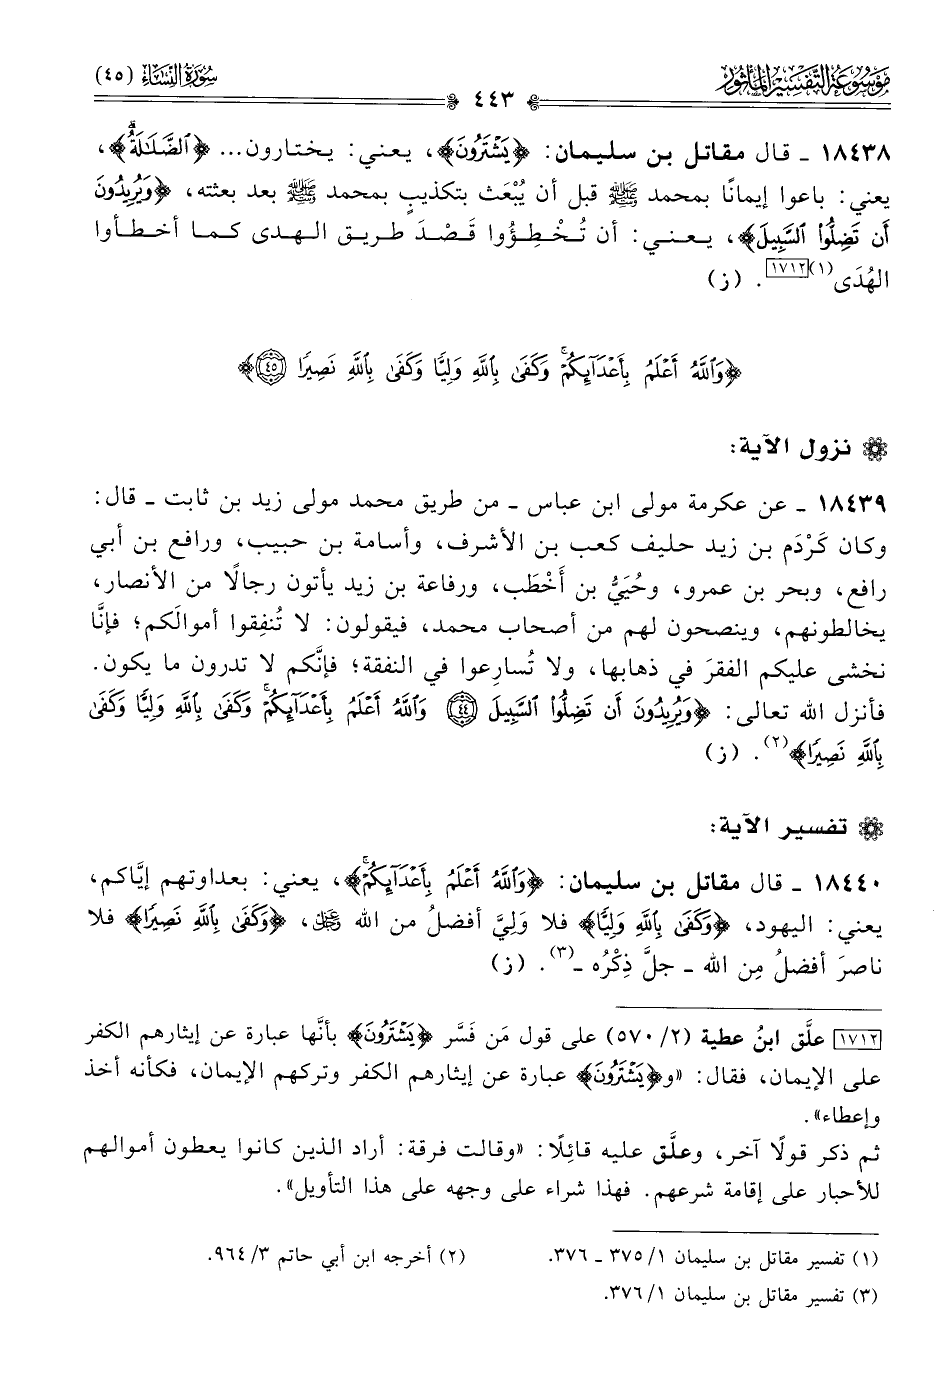 مَوْسُوعَةُ التَّفْسِيرِ المَأْثُورِ
سُورَةُ النِّسَاءِ (٤٥)
٤٤٣
١٨٤٣٨ ـ قال مقاتل بن سليمان: ﴿يَشْتَرُونَ﴾، يعني: يختارون... ﴿الضَّلَالَةَ﴾،
يعني: باعوا إيمانًا بمحمد ﷺ قبل أن يُبْعَث بتكذيبٍ بمحمد ﷺ بعد بعثته، ﴿وَيُرِيدُونَ
أَن تَضِلُّوا۟ ٱلسَّبِيلَ﴾، يعني: أن تُخْطِؤُوا قَصْدَ طريق الهدى كما أخطأوا
الهُدَى(١)[١٧١٢]. (ز)
﴿وَٱللَّهُ أَعْلَمُ بِأَعْدَآئِكُمْ ۚ وَكَفَىٰ بِٱللَّهِ وَلِيًّا وَكَفَىٰ بِٱللَّهِ نَصِيرًا ٤٥﴾
نزول الآية:
١٨٤٣٩ ـ عن عكرمة مولى ابن عباس ـ من طريق محمد مولى زيد بن ثابت ـ قال:
وكان كَرْدَم بن زيد حليف كعب بن الأشرف، وأسامة بن حبيب، ورافع بن أبي
رافع، وبحر بن عمرو، وحُيَيُّ بن أَخْطَب، ورفاعة بن زيد يأتون رجالًا من الأنصار،
يخالطونهم، وينصحون لهم من أصحاب محمد، فيقولون: لا تُنفِقوا أموالَكم؛ فإنَّا
نخشى عليكم الفقرَ في ذهابها، ولا تُسارِعوا في النفقة؛ فإنَّكم لا تدرون ما يكون.
فأنزل الله تعالى: ﴿وَيُرِيدُونَ أَن تَضِلُّوا۟ ٱلسَّبِيلَ ٤٤ وَٱللَّهُ أَعْلَمُ بِأَعْدَآئِكُمْ ۚ وَكَفَىٰ بِٱللَّهِ وَلِيًّا وَكَفَىٰ
بِٱللَّهِ نَصِيرًا﴾(٢). (ز)
تفسير الآية:
١٨٤٤٠ ـ قال مقاتل بن سليمان: ﴿وَٱللَّهُ أَعْلَمُ بِأَعْدَآئِكُمْ ۚ﴾، يعني: بعداوتهم إيَّاكم،
يعني: اليهود، ﴿وَكَفَىٰ بِٱللَّهِ وَلِيًّا﴾ فلا وَلِيَّ أفضلُ من الله عز وجل، ﴿وَكَفَىٰ بِٱللَّهِ نَصِيرًا﴾ فلا
ناصرَ أفضلُ مِن الله ـ جلَّ ذِكْرُه ـ(٣). (ز)
[١٧١٢] علَّق ابنُ عطية (٢/ ٥٧٠) على قول مَن فَسَّر ﴿يَشْتَرُونَ﴾ بأنَّها عبارة عن إيثارهم الكفر
على الإيمان، فقال: «و﴿يَشْتَرُونَ﴾ عبارة عن إيثارهم الكفر وتركهم الإيمان، فكأنه أخذ
وإعطاء».
ثم ذكر قولًا آخر، وعلَّق عليه قائِلًا: «وقالت فرقة: أراد الذين كانوا يعطون أموالهم
للأحبار على إقامة شرعهم. فهذا شراء على وجهه على هذا التأويل».
(١) تفسير مقاتل بن سليمان ١/ ٣٧٥ ـ ٣٧٦.
(٢) أخرجه ابن أبي حاتم ٣/ ٩٦٤.
(٣) تفسير مقاتل بن سليمان ١/ ٣٧٦.